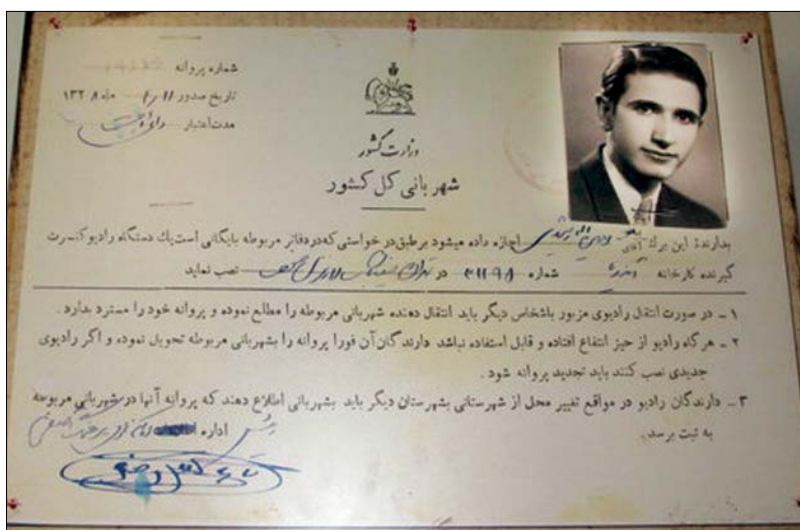 شماره پروانه
تاریخ صدور ۱۱ ر ماه ۱۳۲۸
مدت‌اعتبار
وزارت کشور
شهربانی کل کشور
بدارندهٔ این برگ آقای اجازه داده میشود برطبق‌درخواستی که‌در‌دفاتر مربوطه بایگانی است‌یك دستگاه رادیو‌کنسرت
گیرنده کارخانه شماره در تهران نصب نماید
۱ ـ در صورت انتقال رادیوی مزبور باشخاص دیگر باید انتقال دهنده شهربانی مربوطه را مطلع نموده و پروانه خود را مسترد بدارد .
۲ ـ هر گاه رادیو از حیز انتفاع افتاده و قابل استفاده نباشد دارند گان‌آن فورا پروانه را بشهربانی مربوطه تحویل نموده و اگر رادیوی
جدیدی نصب کنند باید تجدید پروانه شود .
۳ ـ دارندگان رادیو در مواقع تغییر محل از شهرستانی بشهرستان دیگر باید بشهربانی اطلاع دهند که پروانه آنها در‌شهربانی مربوطه
به ثبت برسد .
رئیس اداره